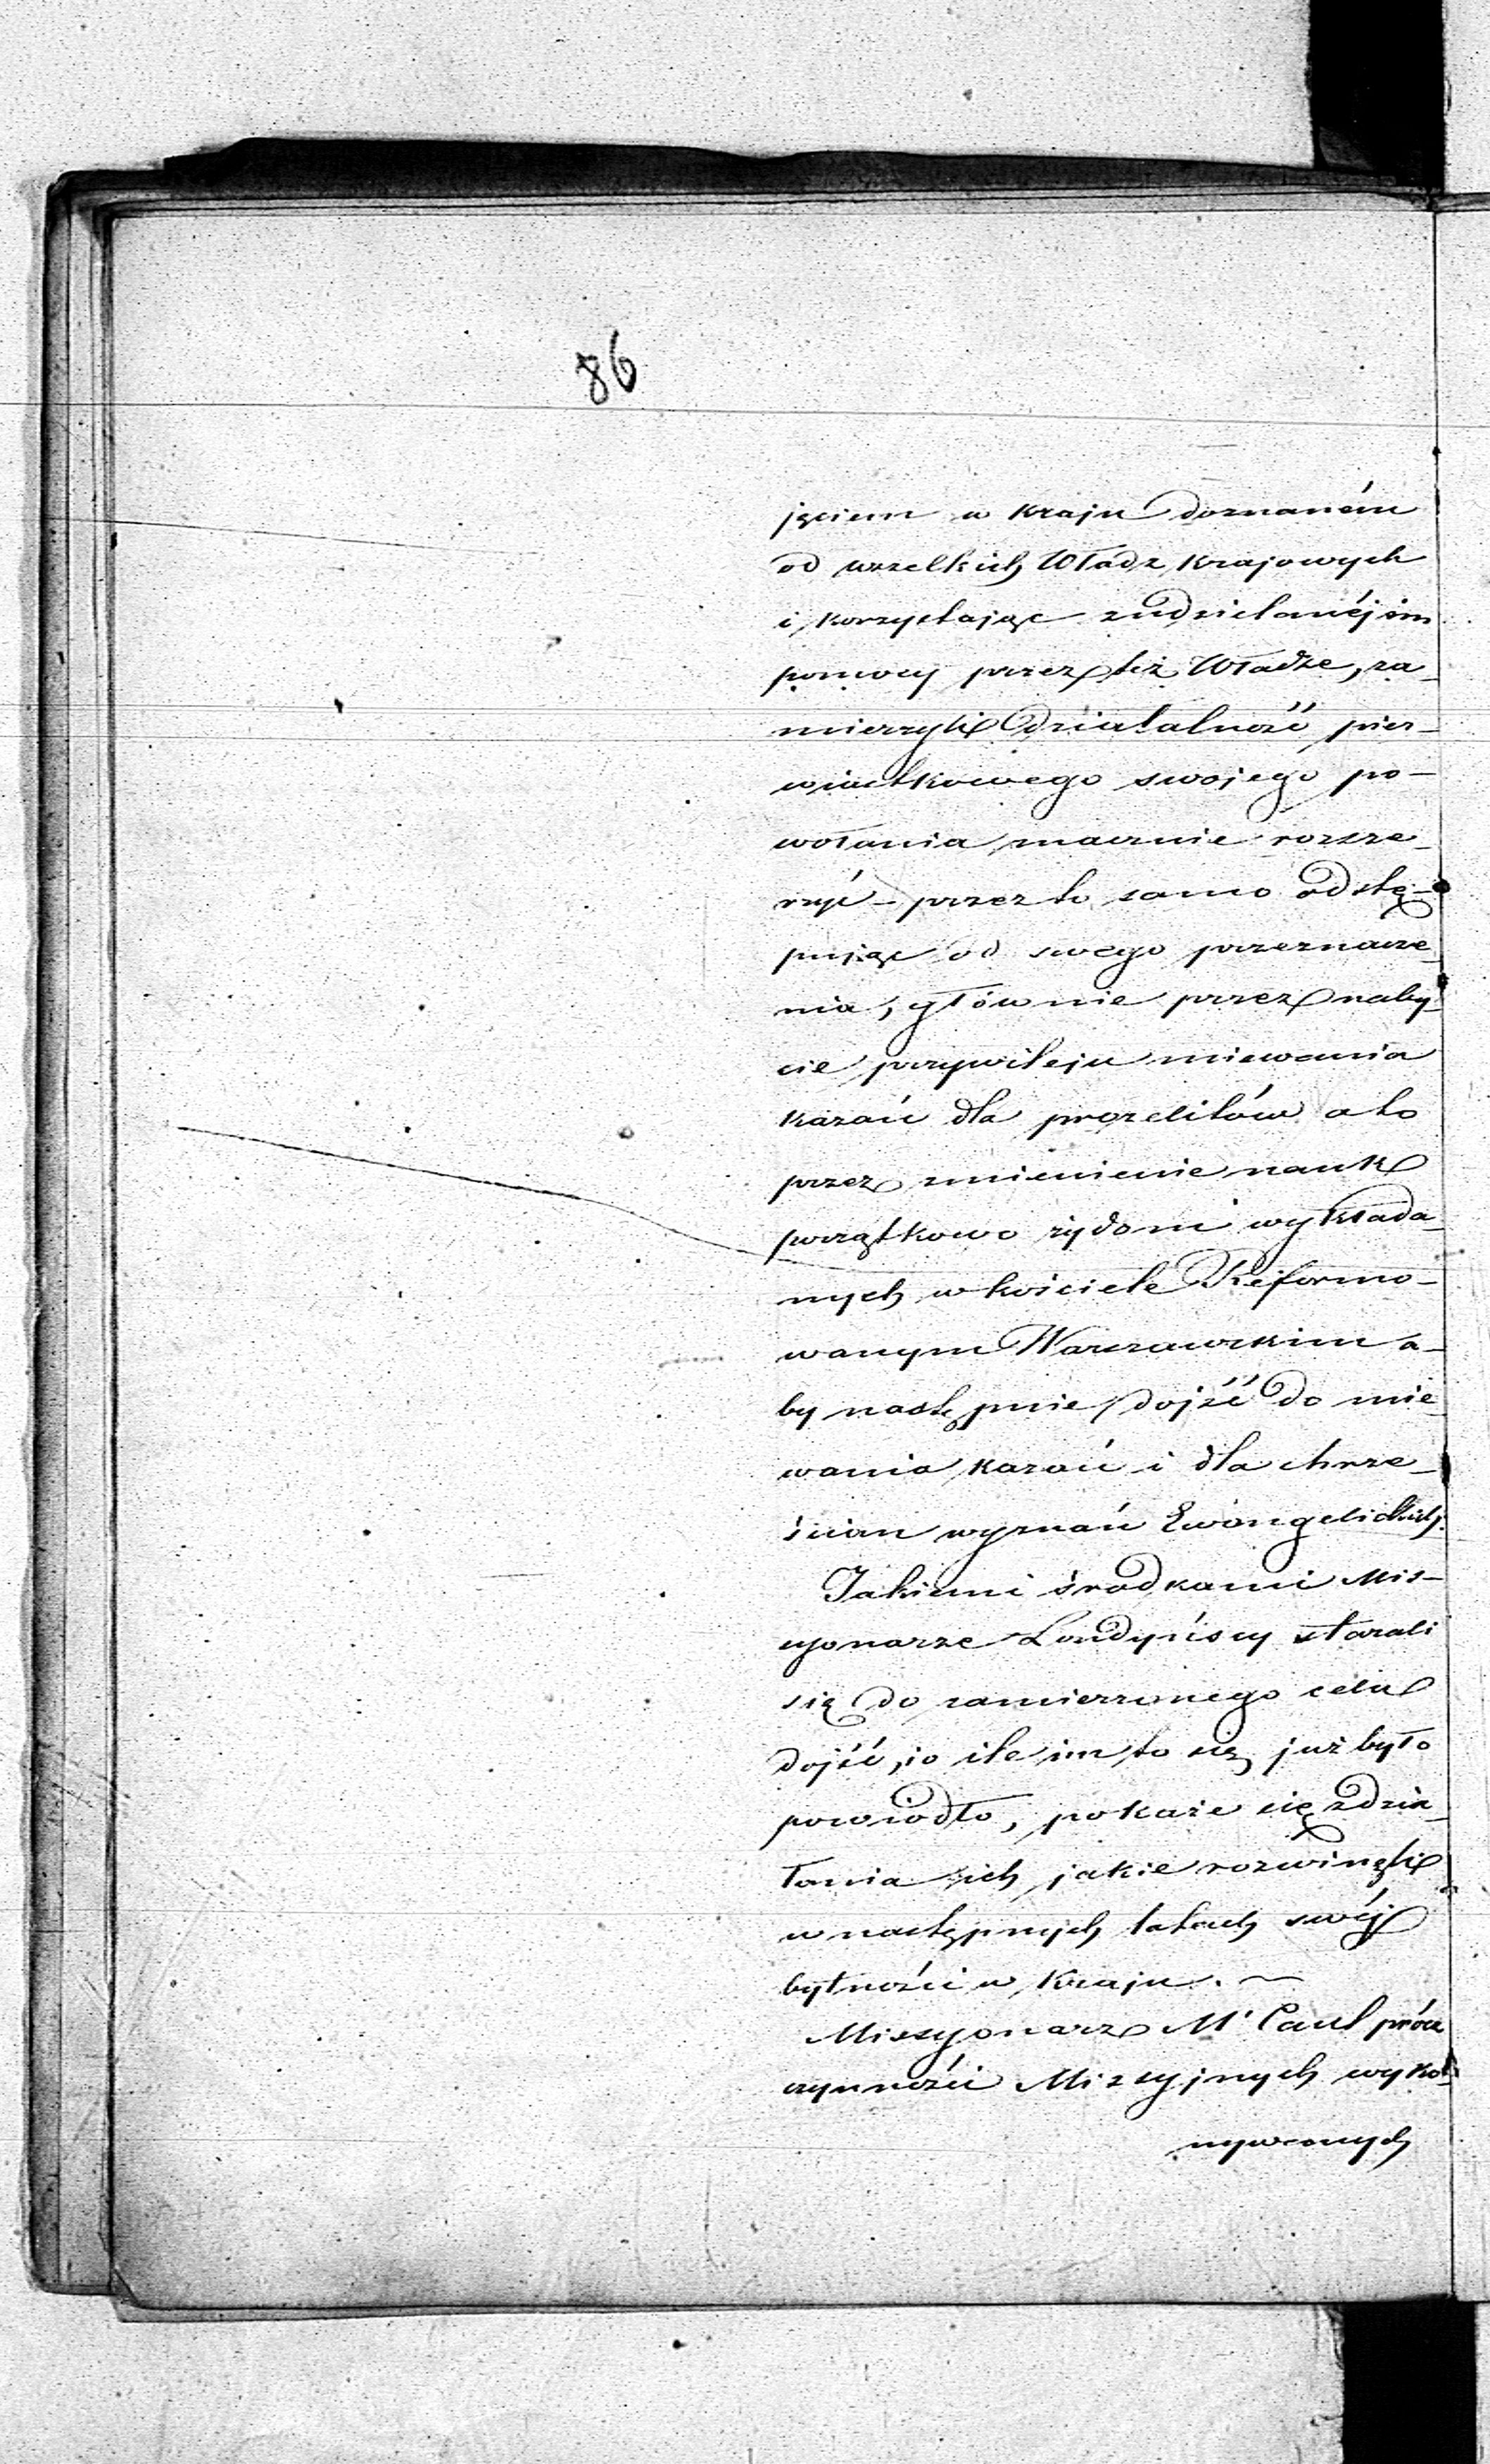 86
jęciem w kraju doznaném
od wszelkich Władz krajowych
i korzystając z udzielanéj im
pomocy przez też Władze, za-
mierzyli działalność pier-
wiastkowego swojego po-
wołania znacznie rozsze-
rzyć - przez to samo odstę-
pując od swego przeznacze-
nia, głównie przez naby-
cie przywileju miewania
kazań dla prozelitów a to
przez zmienienie nauk
początkowo żydom wykłada-
nych w kościele Reformo-
wanym Warszawskim a-
by następnie dojść do mie-
wania kazań i dla chrze-
ścian wyznań Ewangelickich.
Jakiemi środkami Mis-
syonarze Londyńscy starali
się do zamierzonego celu
dojść, i o ile im to się już było
powiodło, pokaże się z dzia-
łania ich jakie rozwinęli
w następnych latach swéj
bytności w Kraju. ~
Missyonarz Mc Caul prócz
czynności Missyjnych wyko-
nywanych